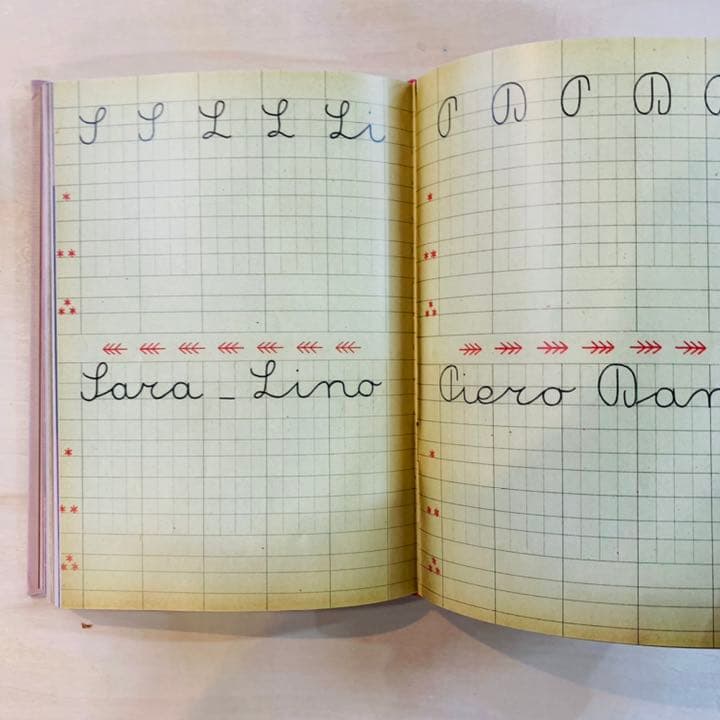 S S L L Li
Sara - Lino
P D P D
Piero